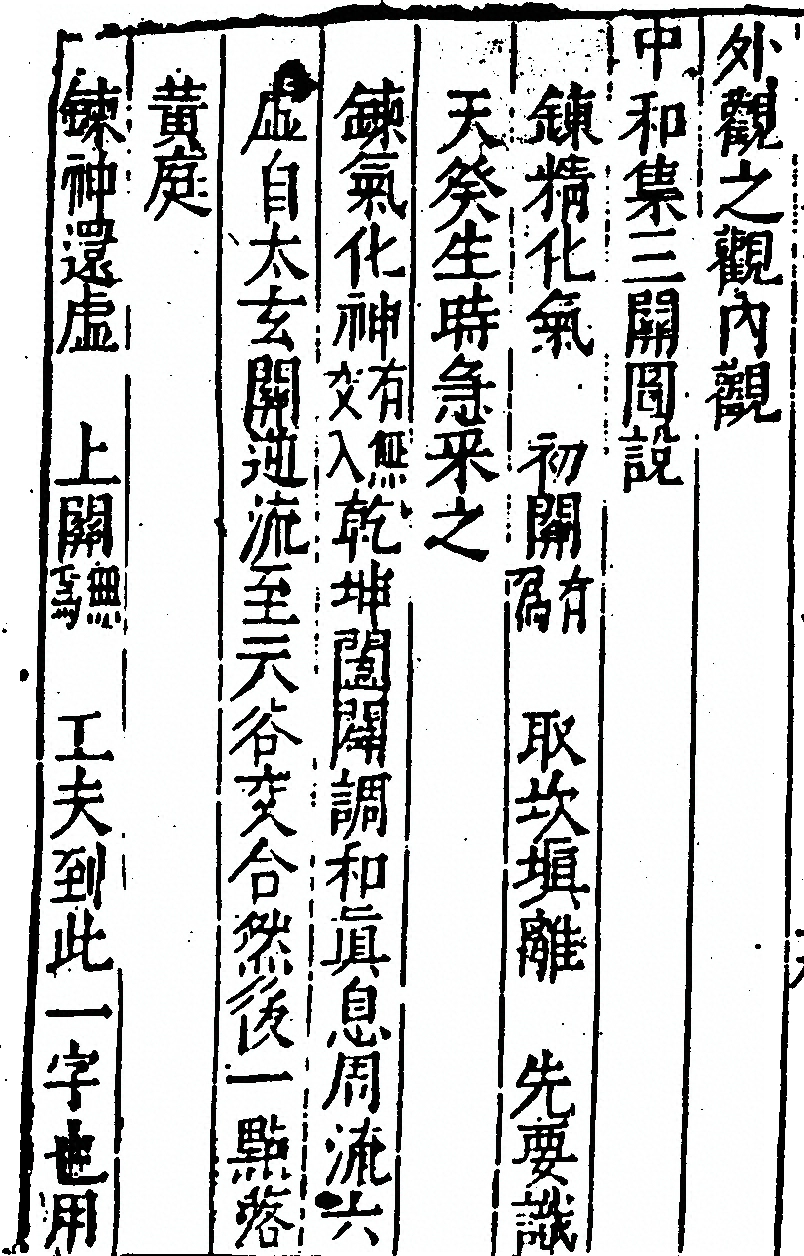 外觀之觀內觀
中和集三關圖說
鍊精化氣　初關有爲　取坎塡離　先要識
天癸生時急采之
鍊氣化神有無交入乾坤闔闢調和眞息周流六
虛自太玄關逆流至天谷交合然後一點落
黃庭
鍊神還虛　上關無爲　工夫到此一字也用